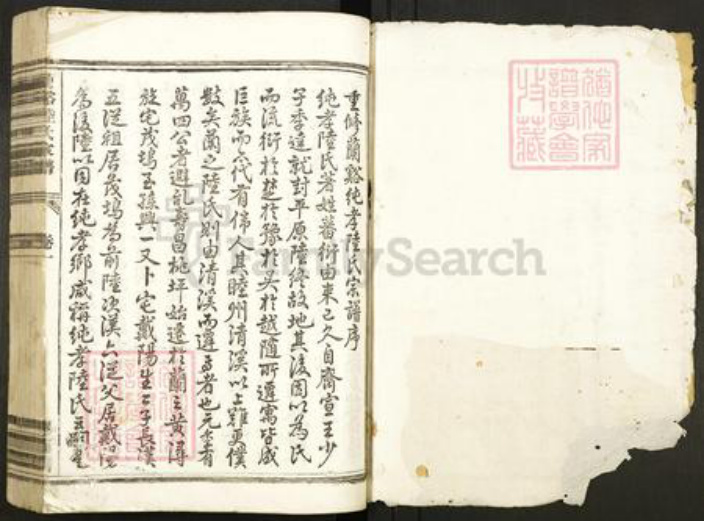 重修蘭谿純孝陸氏宗譜序
純孝陸氏著姓蕃衍由來已久自齊宣王少
子季達就封平原陸終故地其後因以為氏
而流衍於楚於豫於吳於越隨所遷寓皆成
巨族而代有偉人其睦州清溪以上難更僕
數矣蘭之陸氏則由清溪而遷者也元季有
萬四公者避亂壽昌桃坪始遷於蘭之黃潯
旋宅茂塢玉孫興一又卜宅戴陽生二子長漢
五從祖居茂塢為前陸次漢六從父居戴
為後陸以因在純孝鄉咸稱純孝陸氏
猶他家譜學會特藏
FamilySearch
卷一